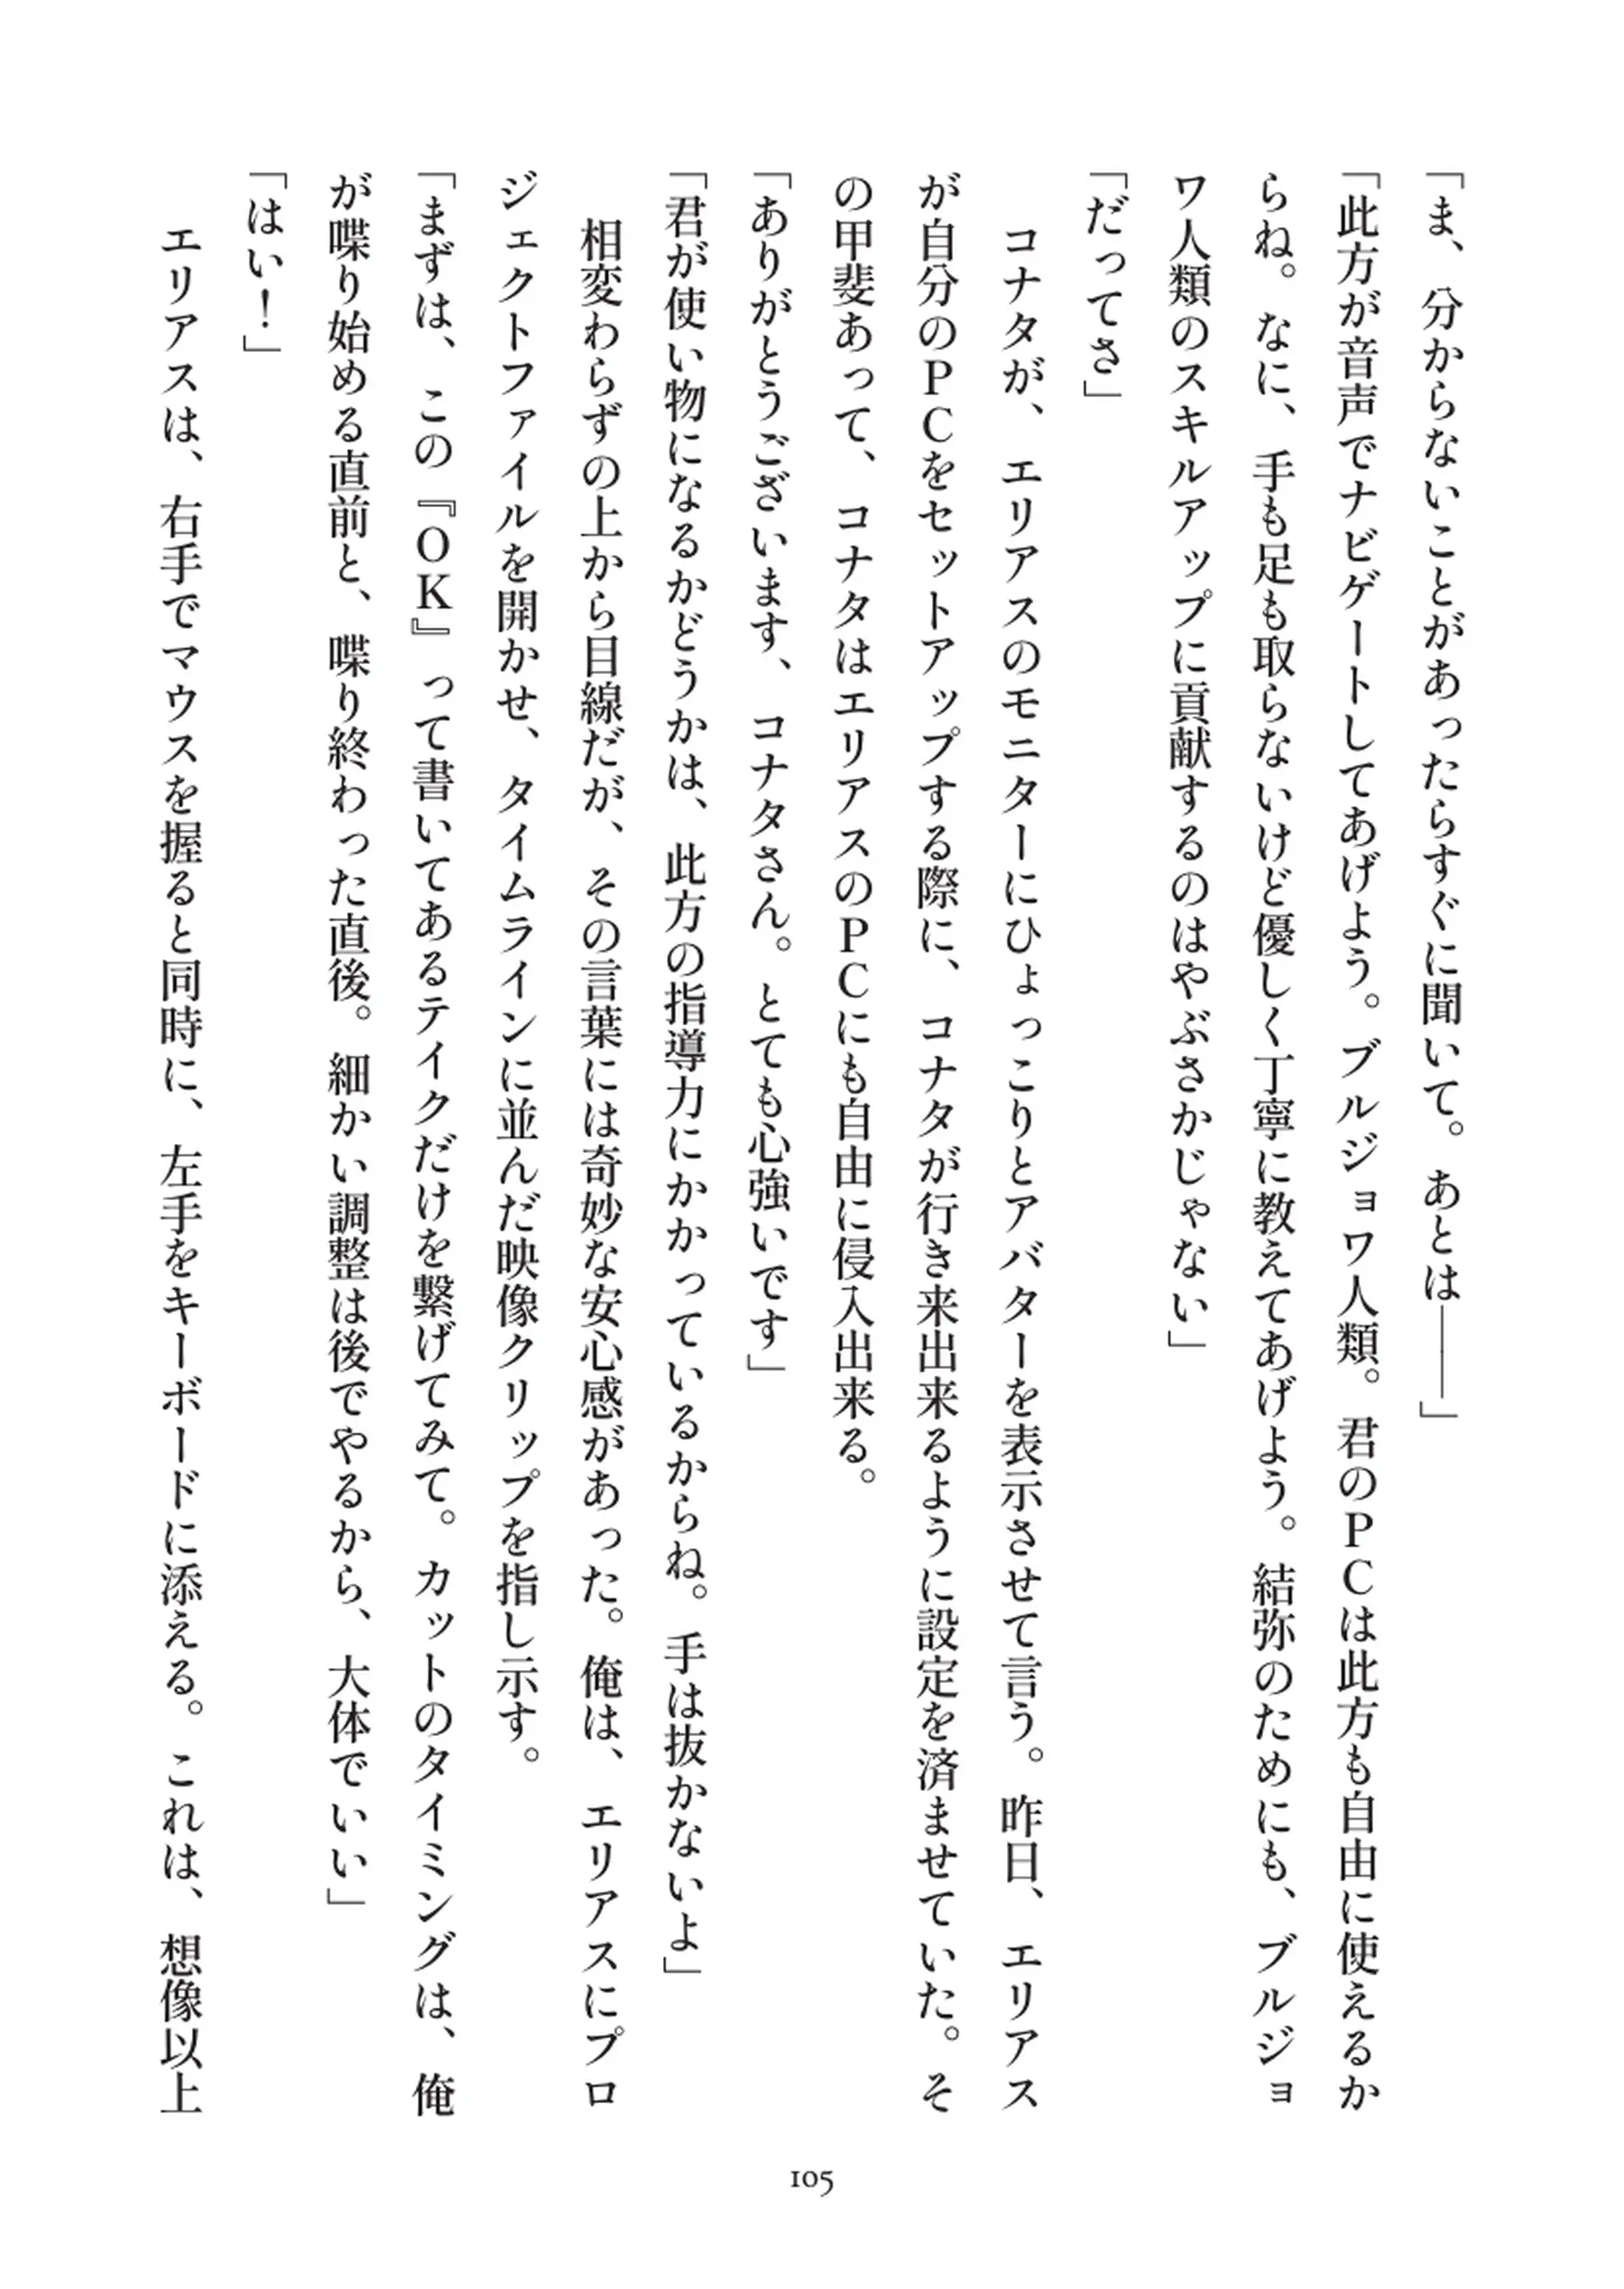 「ま、分からないことがあったらすぐに聞いて。あとは――」
「此方が音声でナビゲートしてあげよう。ブルジョワ人類。君のＰＣは此方も自由に使えるか
らね。なに、手も足も取らないけど優しく丁寧に教えてあげよう。結弥のためにも、ブルジョ
ワ人類のスキルアップに貢献するのはやぶさかじゃない」
「だってさ」
　コナタが、エリアスのモニターにひょっこりとアバターを表示させて言う。昨日、エリアス
が自分のＰＣをセットアップする際に、コナタが行き来出来るように設定を済ませていた。そ
の甲斐あって、コナタはエリアスのＰＣにも自由に侵入出来る。
「ありがとうございます、コナタさん。とても心強いです」
「君が使い物になるかどうかは、此方の指導力にかかっているからね。手は抜かないよ」
　相変わらずの上から目線だが、その言葉には奇妙な安心感があった。俺は、エリアスにプロ
ジェクトファイルを開かせ、タイムラインに並んだ映像クリップを指し示す。
「まずは、この『ＯＫ』って書いてあるテイクだけを繋げてみて。カットのタイミングは、俺
が喋り始める直前と、喋り終わった直後。細かい調整は後でやるから、大体でいい」
「はい！」
　エリアスは、右手でマウスを握ると同時に、左手をキーボードに添える。これは、想像以上
105